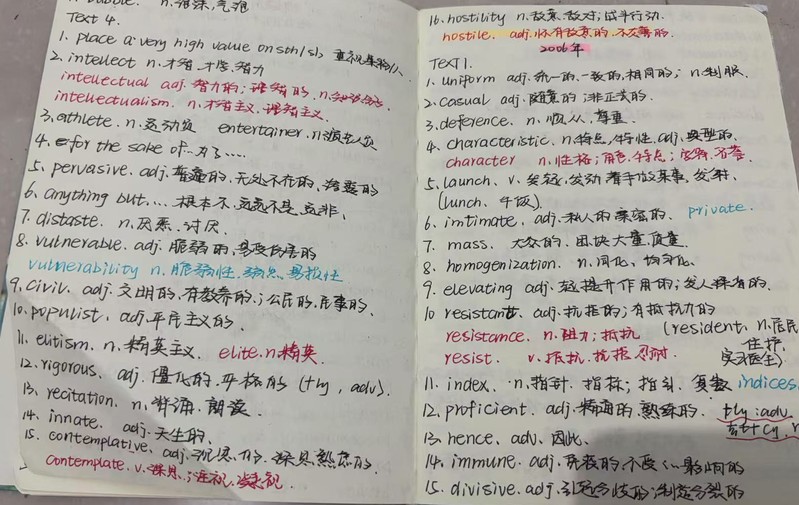 n.泡沫,气泡
Text 4.
1. place a very high value on sth/sb 重视某物/人
2. intellect n.才智.才学.智力
intellectual adj.智力的;理智的.n.知识分子
intellectualism. n.才智主义.理智主义.
3. athlete. n.运动员 entertainer.n.演艺人员
4. for the sake of...为了....
5. pervasive. adj.普遍的.无处不在的.弥漫的
6. anything but.... 根本不.远远不是.远非、
7. distaste. n.厌恶.讨厌.
8. vulnerable. adj.脆弱的.易受伤害的
vulnerability n.脆弱性.弱点.
9. civil. adj.文明的.有教养的;公民的.民事的、
10. populist. adj.平民主义的.
11. elitism. n.精英主义. elite.n.精英.
12. rigorous. adj.僵化的.严格的 (+ly, adv).
13. recitation. n.背诵.朗读.
14. innate. adj.天生的.
15. contemplative. adj.沉思的.深思熟虑的.
contemplate. v.深思;注视.凝视.
16. hostility n.敌意.敌对;战斗行动.
hostile. adj.怀有敌意的.不友善的.
2006年
TEXT 1.
1. uniform adj.统一的.一致的.相同的; n.制服.
2. casual adj.随意的;非正式的.
3. deference. n.顺从.尊重.
4. characteristic. n.特点.特性.adj.典型的.
character n.性格;角色.特点;
5. launch. v.发起.发动 着手做某事.发射.
(lunch. 午饭).
6. intimate. adj.私人的 亲密的. private.
7. mass. 大众的.团块 大量.质量.
8. homogenization. n.同化.均匀化.
9. elevating adj.起提升作用的;发人深省的.
10. resistant adj.抗拒的;有抵抗力的
resistance. n.阻力;抵抗 (resident. n.居民
resist. v.抵抗.抗拒.忍耐. 住户.
实习医生)
11. index. n.指针.指标;指引. 复数 indices.
12. proficient. adj.精通的.熟练的. +ly:adv.
去t+cy
13. hence. adv.因此.
14. immune. adj.免疫的.不受(...影响的
15. divisive. adj.引起分歧的;制造分裂的